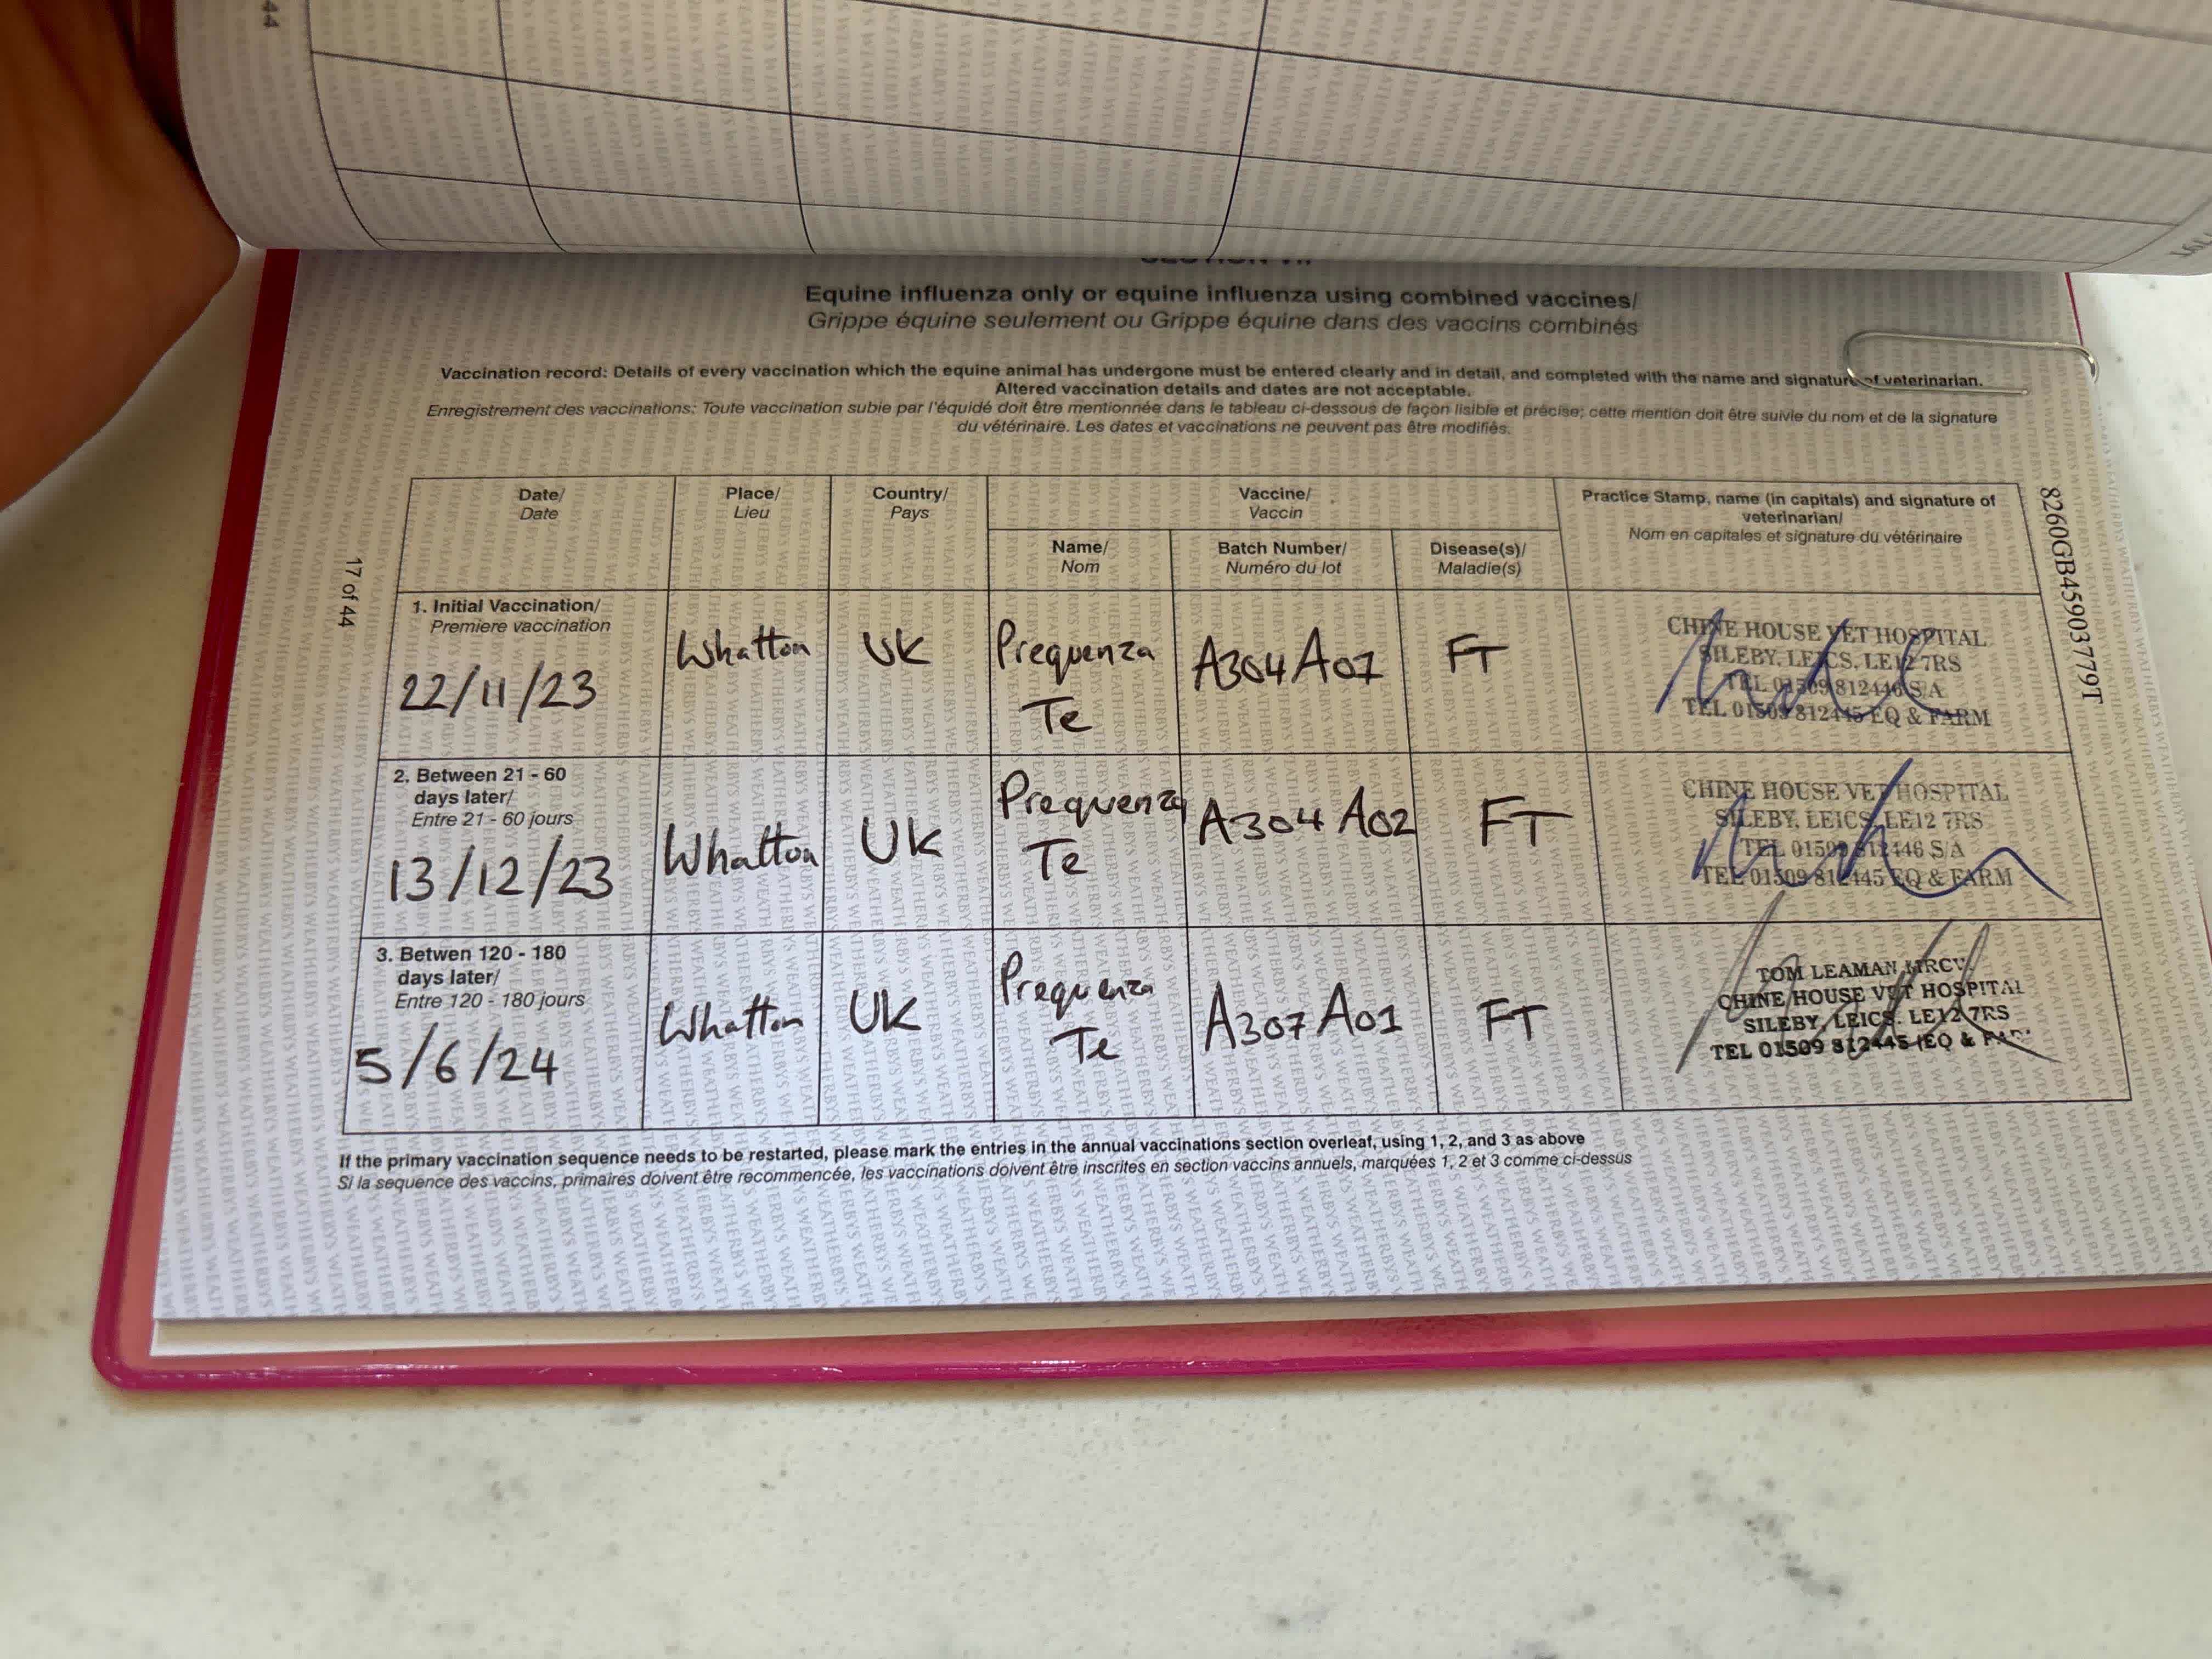 44
Equine influenza only or equine influenza using combined vaccines/
Grippe équine seulement ou Grippe équine dans des vaccins combinés
Vaccination record: Details of every vaccination which the equine animal has undergone must be entered clearly and in detail, and completed with the name and signature of veterinarian.
Altered vaccination details and dates are not acceptable.
Enregistrement des vaccinations: Toute vaccination subie par l'équidé doit être mentionnée dans le tableau ci-dessous de façon lisible et précise; cette mention doit être suivie du nom et de la signature
du vétérinaire. Les dates et vaccinations ne peuvent pas être modifiés.
Date/
Date
Place/
Lieu
Country/
Pays
Vaccine/
Vaccin
Name/
Nom
Batch Number/
Numéro du lot
Disease(s)/
Maladie(s)
Practice Stamp, name (in capitals) and signature of
veterinarian/
Nom en capitales et signature du vétérinaire
1. Initial Vaccination/
Premiere vaccination
22/11/23
Whatton
UK
Prequenza
Te
A304A07
FT
CHINE HOUSE VET HOSPITAL
SILEBY, LEICS, LE12 7RS
TEL 01509 812446 S/A
TEL 01509 812445 EQ & FARM
2. Between 21 - 60
days later/
Entre 21 - 60 jours
13/12/23
Whatton
UK
Prequenza
Te
A304A02
FT
CHINE HOUSE VET HOSPITAL
SILEBY, LEICS, LE12 7RS
TEL 01509 812446 S/A
TEL 01509 812445 EQ & FARM
3. Betwen 120 - 180
days later/
Entre 120 - 180 jours
5/6/24
Whatton
UK
Prequenza
Te
A307A01
FT
TOM LEAMAN MRCV
CHINE HOUSE VET HOSPITAL
SILEBY, LEICS. LE12 7RS
TEL 01509 812445 (EQ &
If the primary vaccination sequence needs to be restarted, please mark the entries in the annual vaccinations section overleaf, using 1, 2, and 3 as above
Si la sequence des vaccins, primaires doivent être recommencée, les vaccinations doivent être inscrites en section vaccins annuels, marquées 1, 2 et 3 comme ci-dessus
17 of 44
8260GB45903779T